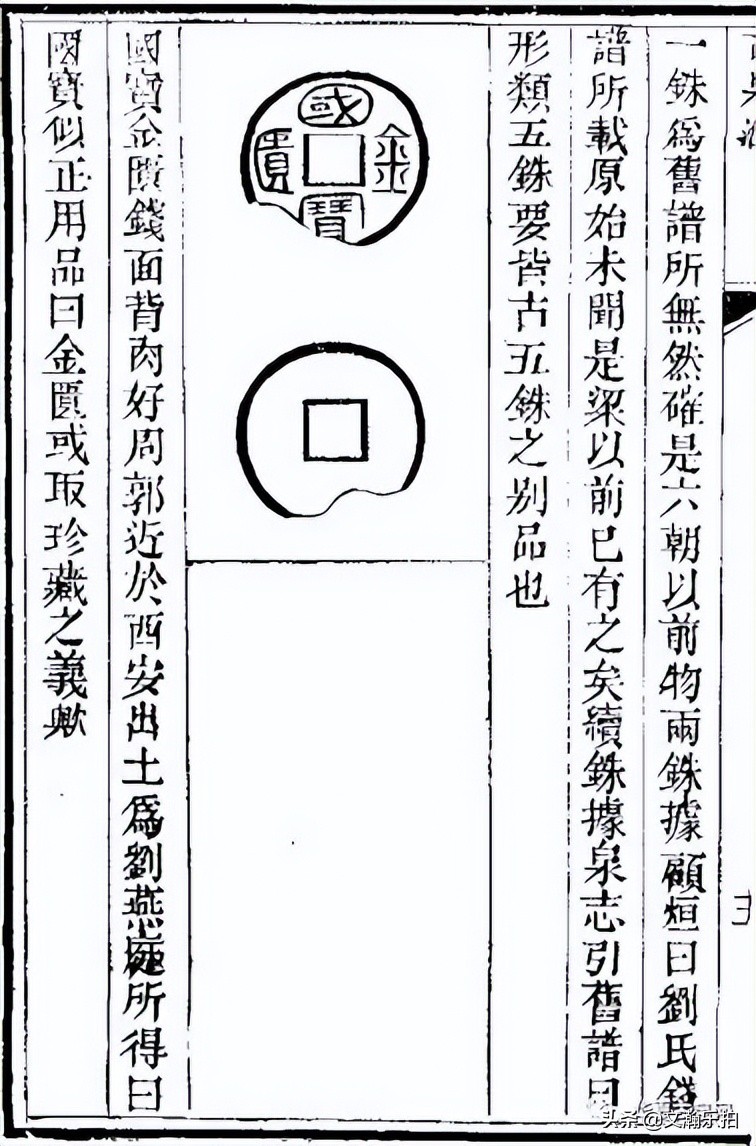 一銖爲舊譜所無然確是六朝以前物兩銖據顧烜曰劉氏錢
譜所載原始未聞是梁以前已有之矣續銖據泉志引舊譜曰
形類五銖要皆古五銖之别品也
國金寶匱
國寶金匱錢面背肉好周郭近於西安出土爲劉燕庭所得曰
國寶似正用品曰金匱或取珍藏之義歟
头条@文瀚乐拍